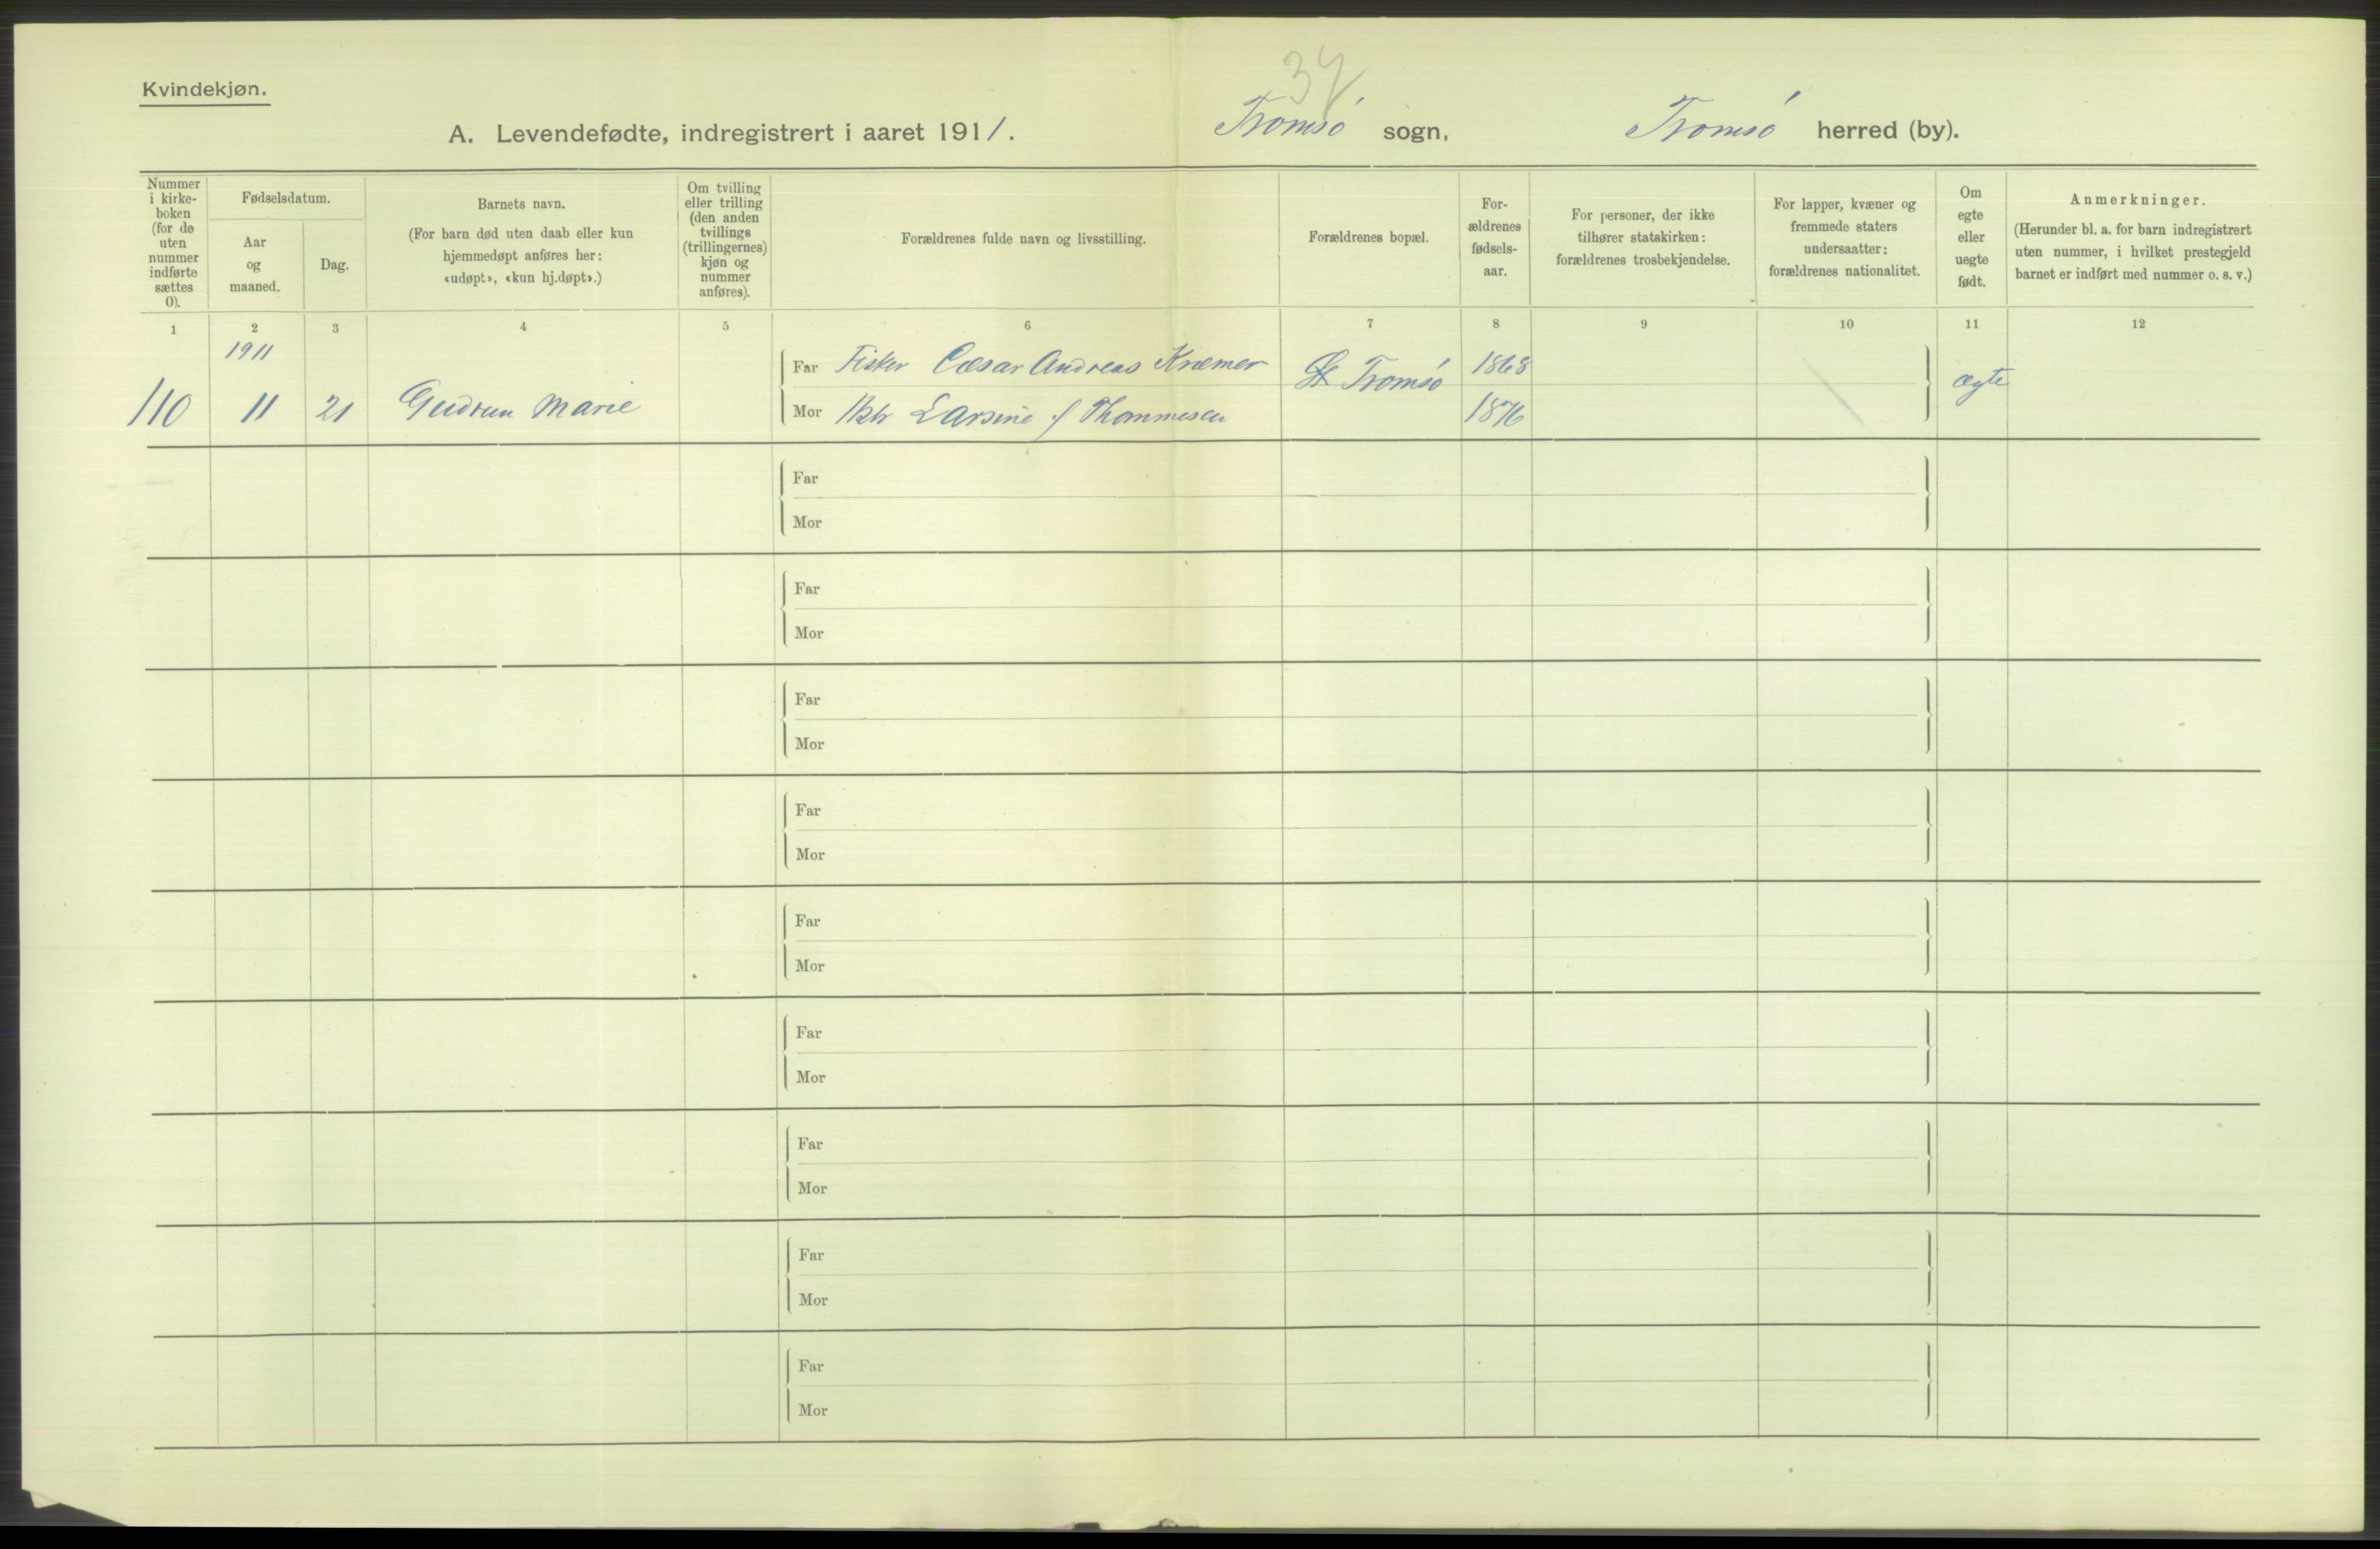 34
Kvindekjøn.
A. Levendefødte, indregistrert i aaret 1911. Tromsö sogn, Tromsö herred (by).
Nummer i kirke-boken (for de uten nummer indførte sættes 0).
Fødselsdatum.
Aar og maaned.
Dag.
Barnets navn.
(For barn død uten daab eller kun hjemmedøpt anføres her: «udøpt», «kun hj.døpt».)
Om tvilling eller trilling (den anden tvillings (trillingernes) kjøn og nummer anføres).
Forældrenes fulde navn og livsstilling.
Forældrenes bopæl.
For-ældrenes fødsels-aar.
For personer, der ikke tilhører statskirken: forældrenes trosbekjendelse.
For lapper, kvæner og fremmede staters undersaatter: forældrenes nationalitet.
Om egte eller uegte født.
Anmerkninger.
(Herunder bl. a. for barn indregistrert uten nummer, i hvilket prestegjeld barnet er indført med nummer o. s. v.)
1 2 3 4 5 6 7 8 9 10 11 12
1911
Far Fisker Cæsar Andreas Kræmer 1868
110 11 21 Gudrun Marie Tromsö ægte
Mor Larsine f Thommesen 1876
Far
Mor
Far
Mor
Far
Mor
Far
Mor
Far
Mor
Far
Mor
Far
Mor
Far
Mor
Far
Mor